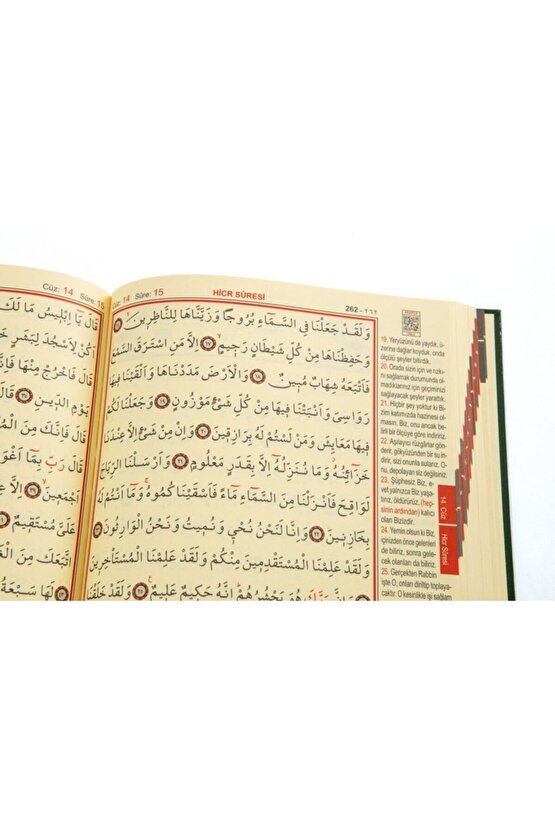 Cüz: 14 Sûre: 15 HİCR SÛRESİ 262 - ٢٦٢
وَلَقَدْ جَعَلْنَا فِى السَّمَٓاءِ بُرُوجًا وَزَيَّنَّاهَا لِلنَّاظِرٖينَ ١٦
وَحَفِظْنَاهَا مِنْ كُلِّ شَيْطَانٍ رَجٖيمٍ ١٧ اِلَّا مَنِ اسْتَرَقَ السَّمْعَ
فَاَتْبَعَهُ شِهَابٌ مُبٖينٌ ١٨ وَالْاَرْضَ مَدَدْنَاهَا وَاَلْقَيْنَا فٖيهَا
رَوَاسِىَ وَاَنْبَتْنَا فٖيهَا مِنْ كُلِّ شَىْءٍ مَوْزُونٍ ١٩ وَجَعَلْنَا لَكُمْ
فٖيهَا مَعَايِشَ وَمَنْ لَسْتُمْ لَهُ بِرَازِقٖينَ ٢٠ وَاِنْ مِنْ شَىْءٍ اِلَّا عِنْدَنَا
خَزَٓائِنُهُ وَمَا نُنَزِّلُهُٓ اِلَّا بِقَدَرٍ مَعْلُومٍ ٢١ وَاَرْسَلْنَا الرِّيَاحَ
لَوَاقِحَ فَاَنْزَلْنَا مِنَ السَّمَٓاءِ مَٓاءً فَاَسْقَيْنَاكُمُوهُ وَمَٓا اَنْتُمْ لَهُ
بِخَازِنٖينَ ٢٢ وَاِنَّا لَنَحْنُ نُحْيٖ وَنُمٖيتُ وَنَحْنُ الْوَارِثُونَ ٢٣
وَلَقَدْ عَلِمْنَا الْمُسْتَقْدِمٖينَ مِنْكُمْ وَلَقَدْ عَلِمْنَا الْمُسْتَأْخِرٖينَ
٢٤ وَاِنَّ رَبَّكَ هُوَ يَحْشُرُهُمْ اِنَّهُ حَكٖيمٌ عَلٖيمٌ ٢٥ وَلَقَدْ خَلَقْنَا
19. Yeryüzünü de yaydık, ü-
zerine dağlar koyduk, onda
ölçülü şeyler bitirdik.
20. Orada sizin için ve rızkı-
nı sağlamak durumunda ol-
madıklarınız için geçiminizi
sağlayacak şeyler yarattık.
21. Hiçbir şey yoktur ki Bi-
zim katımızda hazinesi ol-
masın. Biz, onu ancak be-
lirli bir ölçüye göre indiririz.
22. Aşılayıcı rüzgârlar gön-
derir, gökyüzünden bir su in-
dirir, sizi onunla sularız. O-
nu, depolayan siz değilsiniz.
23. Şüphesiz Biz, e-
vet yalnızca Biz yaşa-
tırız, öldürürüz, (hep-
sinin ardından) kalıcı
olan Bizizdir.
24. Yemin olsun ki Biz,
içinizden önce gelenleri
de biliriz, sonra gele-
cek olanları da biliriz.
25. Gerçekten Rabbin
işte O, onları diriltip toplaya-
caktır. O kesinlikle işi sağlam
14. Cüz Hicr Sûresi
Cüz: 14 Sûre: 15
قَالَ يَٓا اِبْلٖيسُ مَا لَكَ
اَكُنْ لِاَسْجُدَ لِبَشَرٍ
قَالَ فَاخْرُجْ مِنْهَا فَاِنَّكَ
يَوْمِ الدّٖينِ
قَالَ فَاِنَّكَ مِنَ الْ
قَالَ رَبِّ بِمَٓا اَغْوَ
اَجْمَعٖينَ اِلَّا عِ
عَلَىَّ مُسْتَقٖيمٌ
اتَّبَعَكَ مِنَ الْغَ
لَهَا سَبْعَةُ